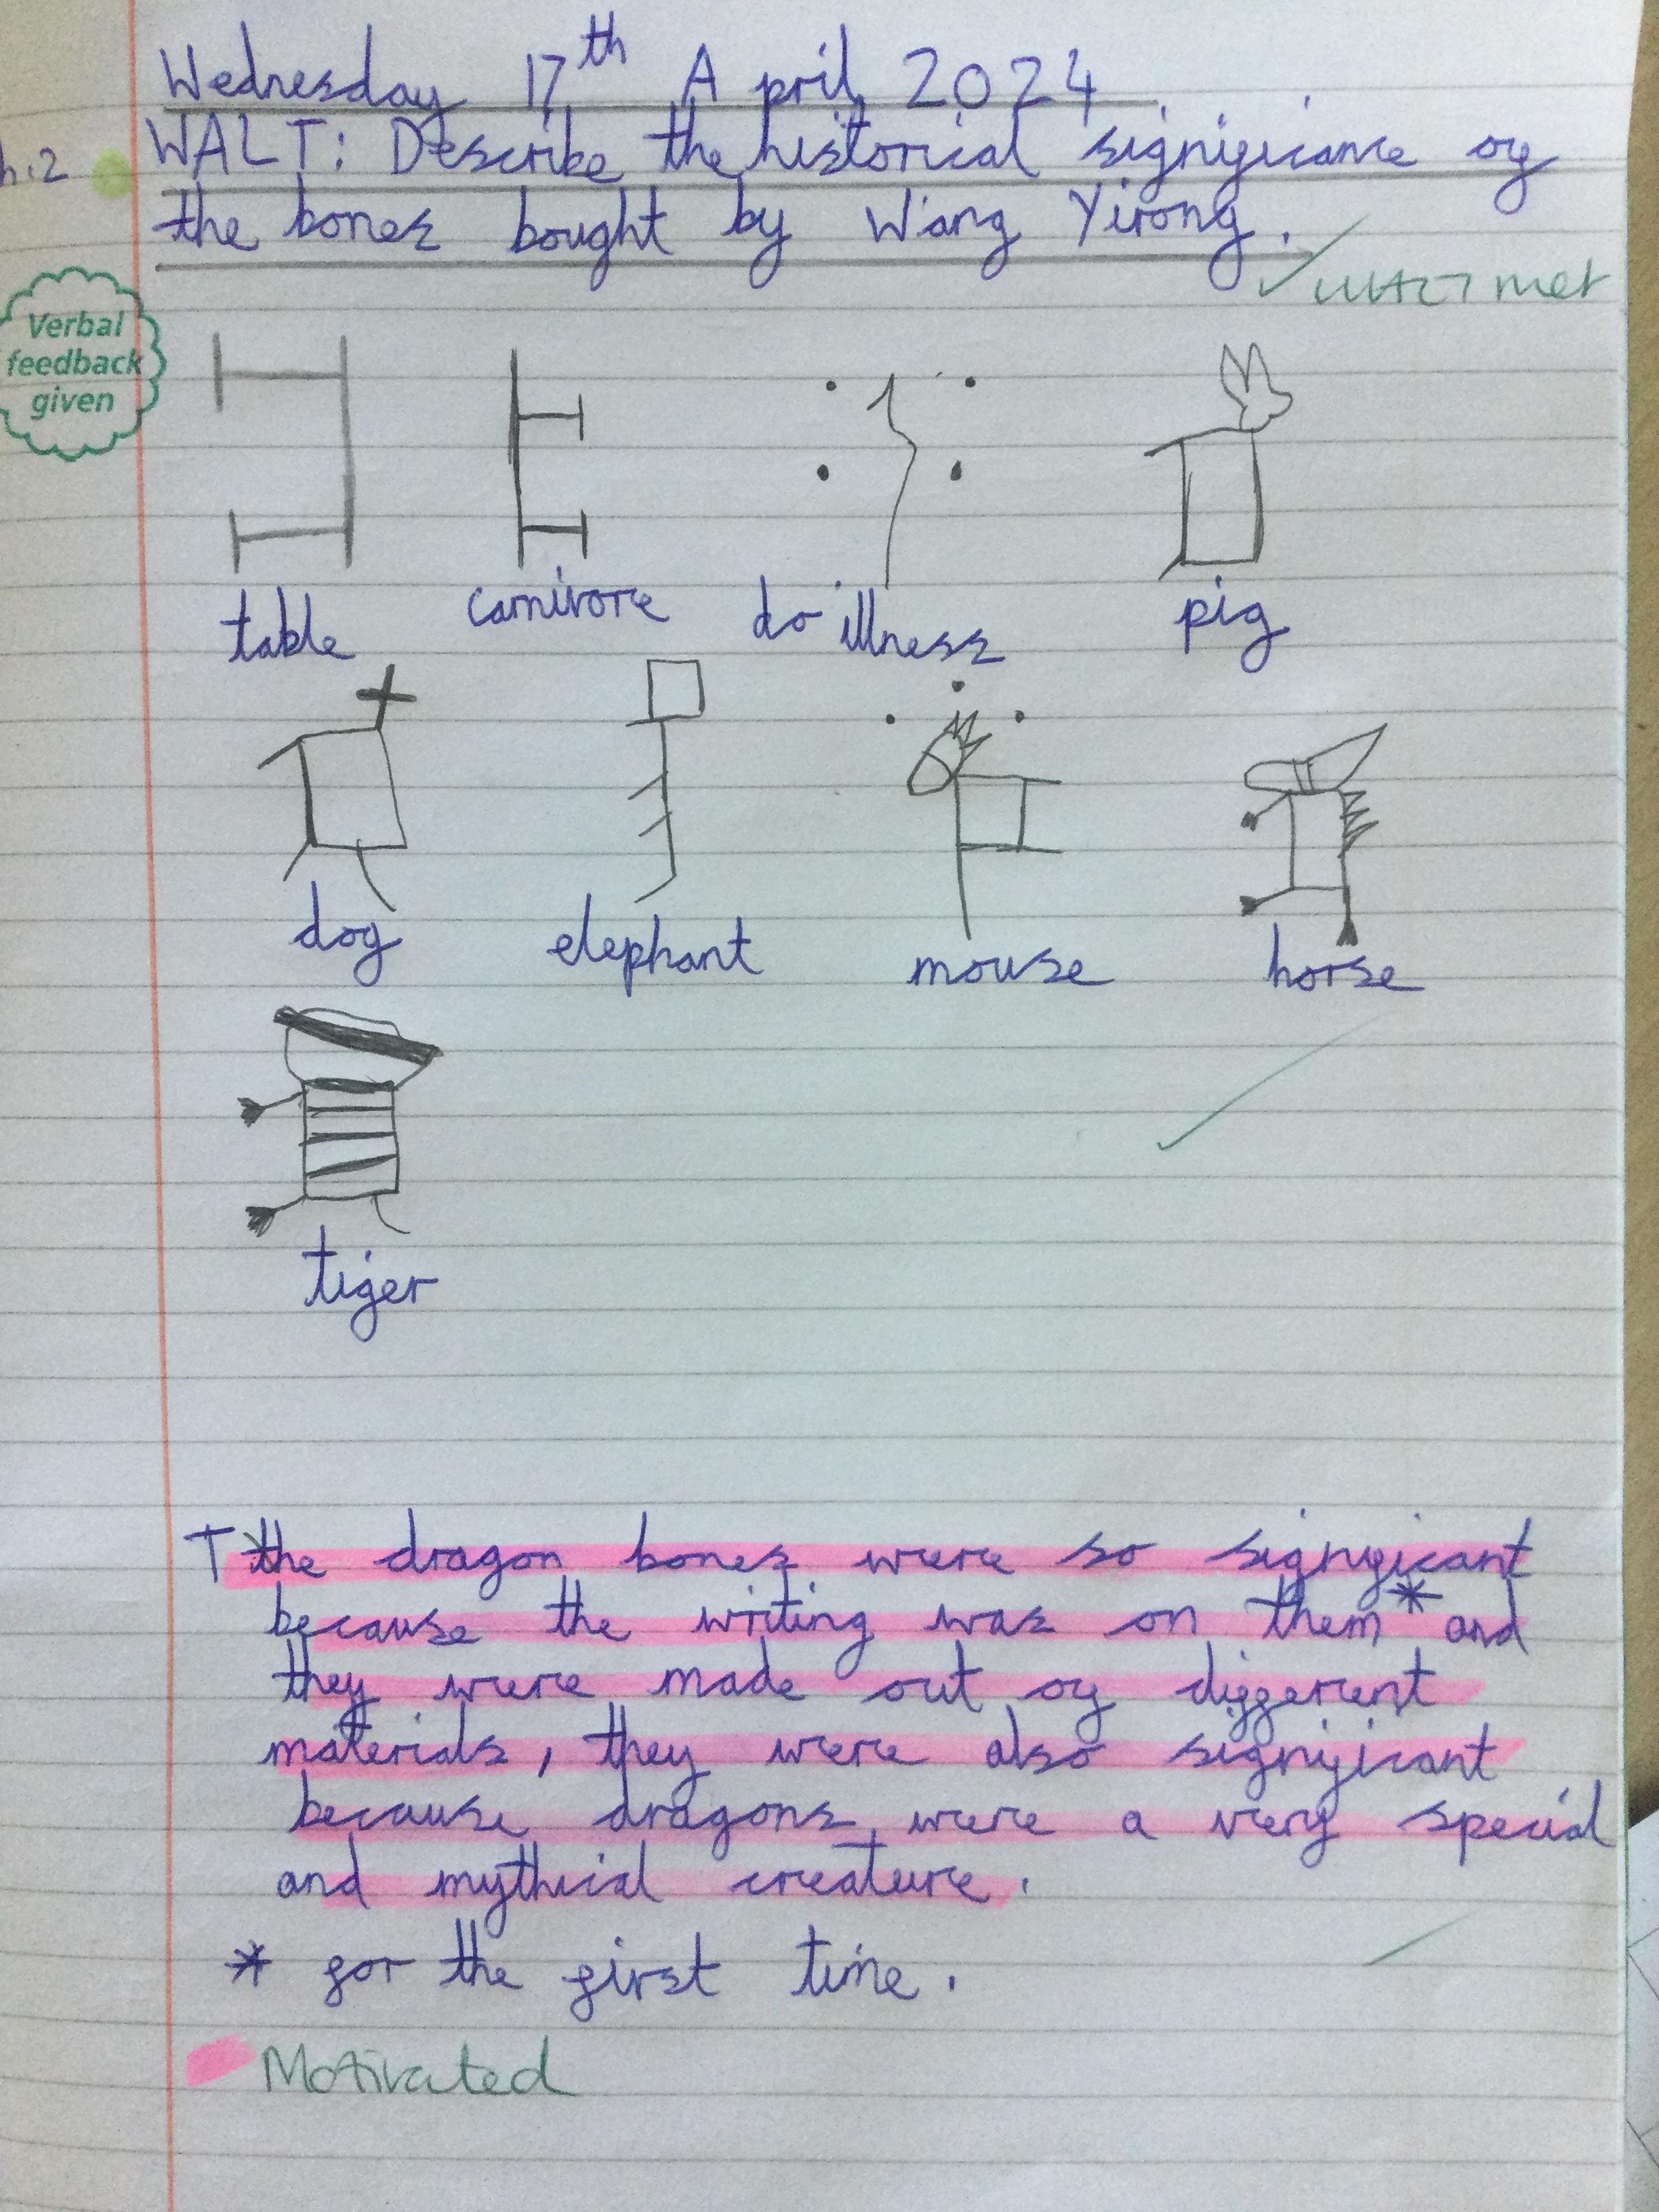 Wednesday 17th April 2024
h.2 WALT: Describe the historical significance of
the bones bought by Wang Yirong.
WALT met
Verbal
feedback
given
table carnivore do illness pig
dog elephant mouse horse
tiger
T the dragon bones were so significant
because the writing was on them * and
they were made out of different
materials, they were also significant
because dragons were a very special
and mythical creature.
* for the first time.
Motivated